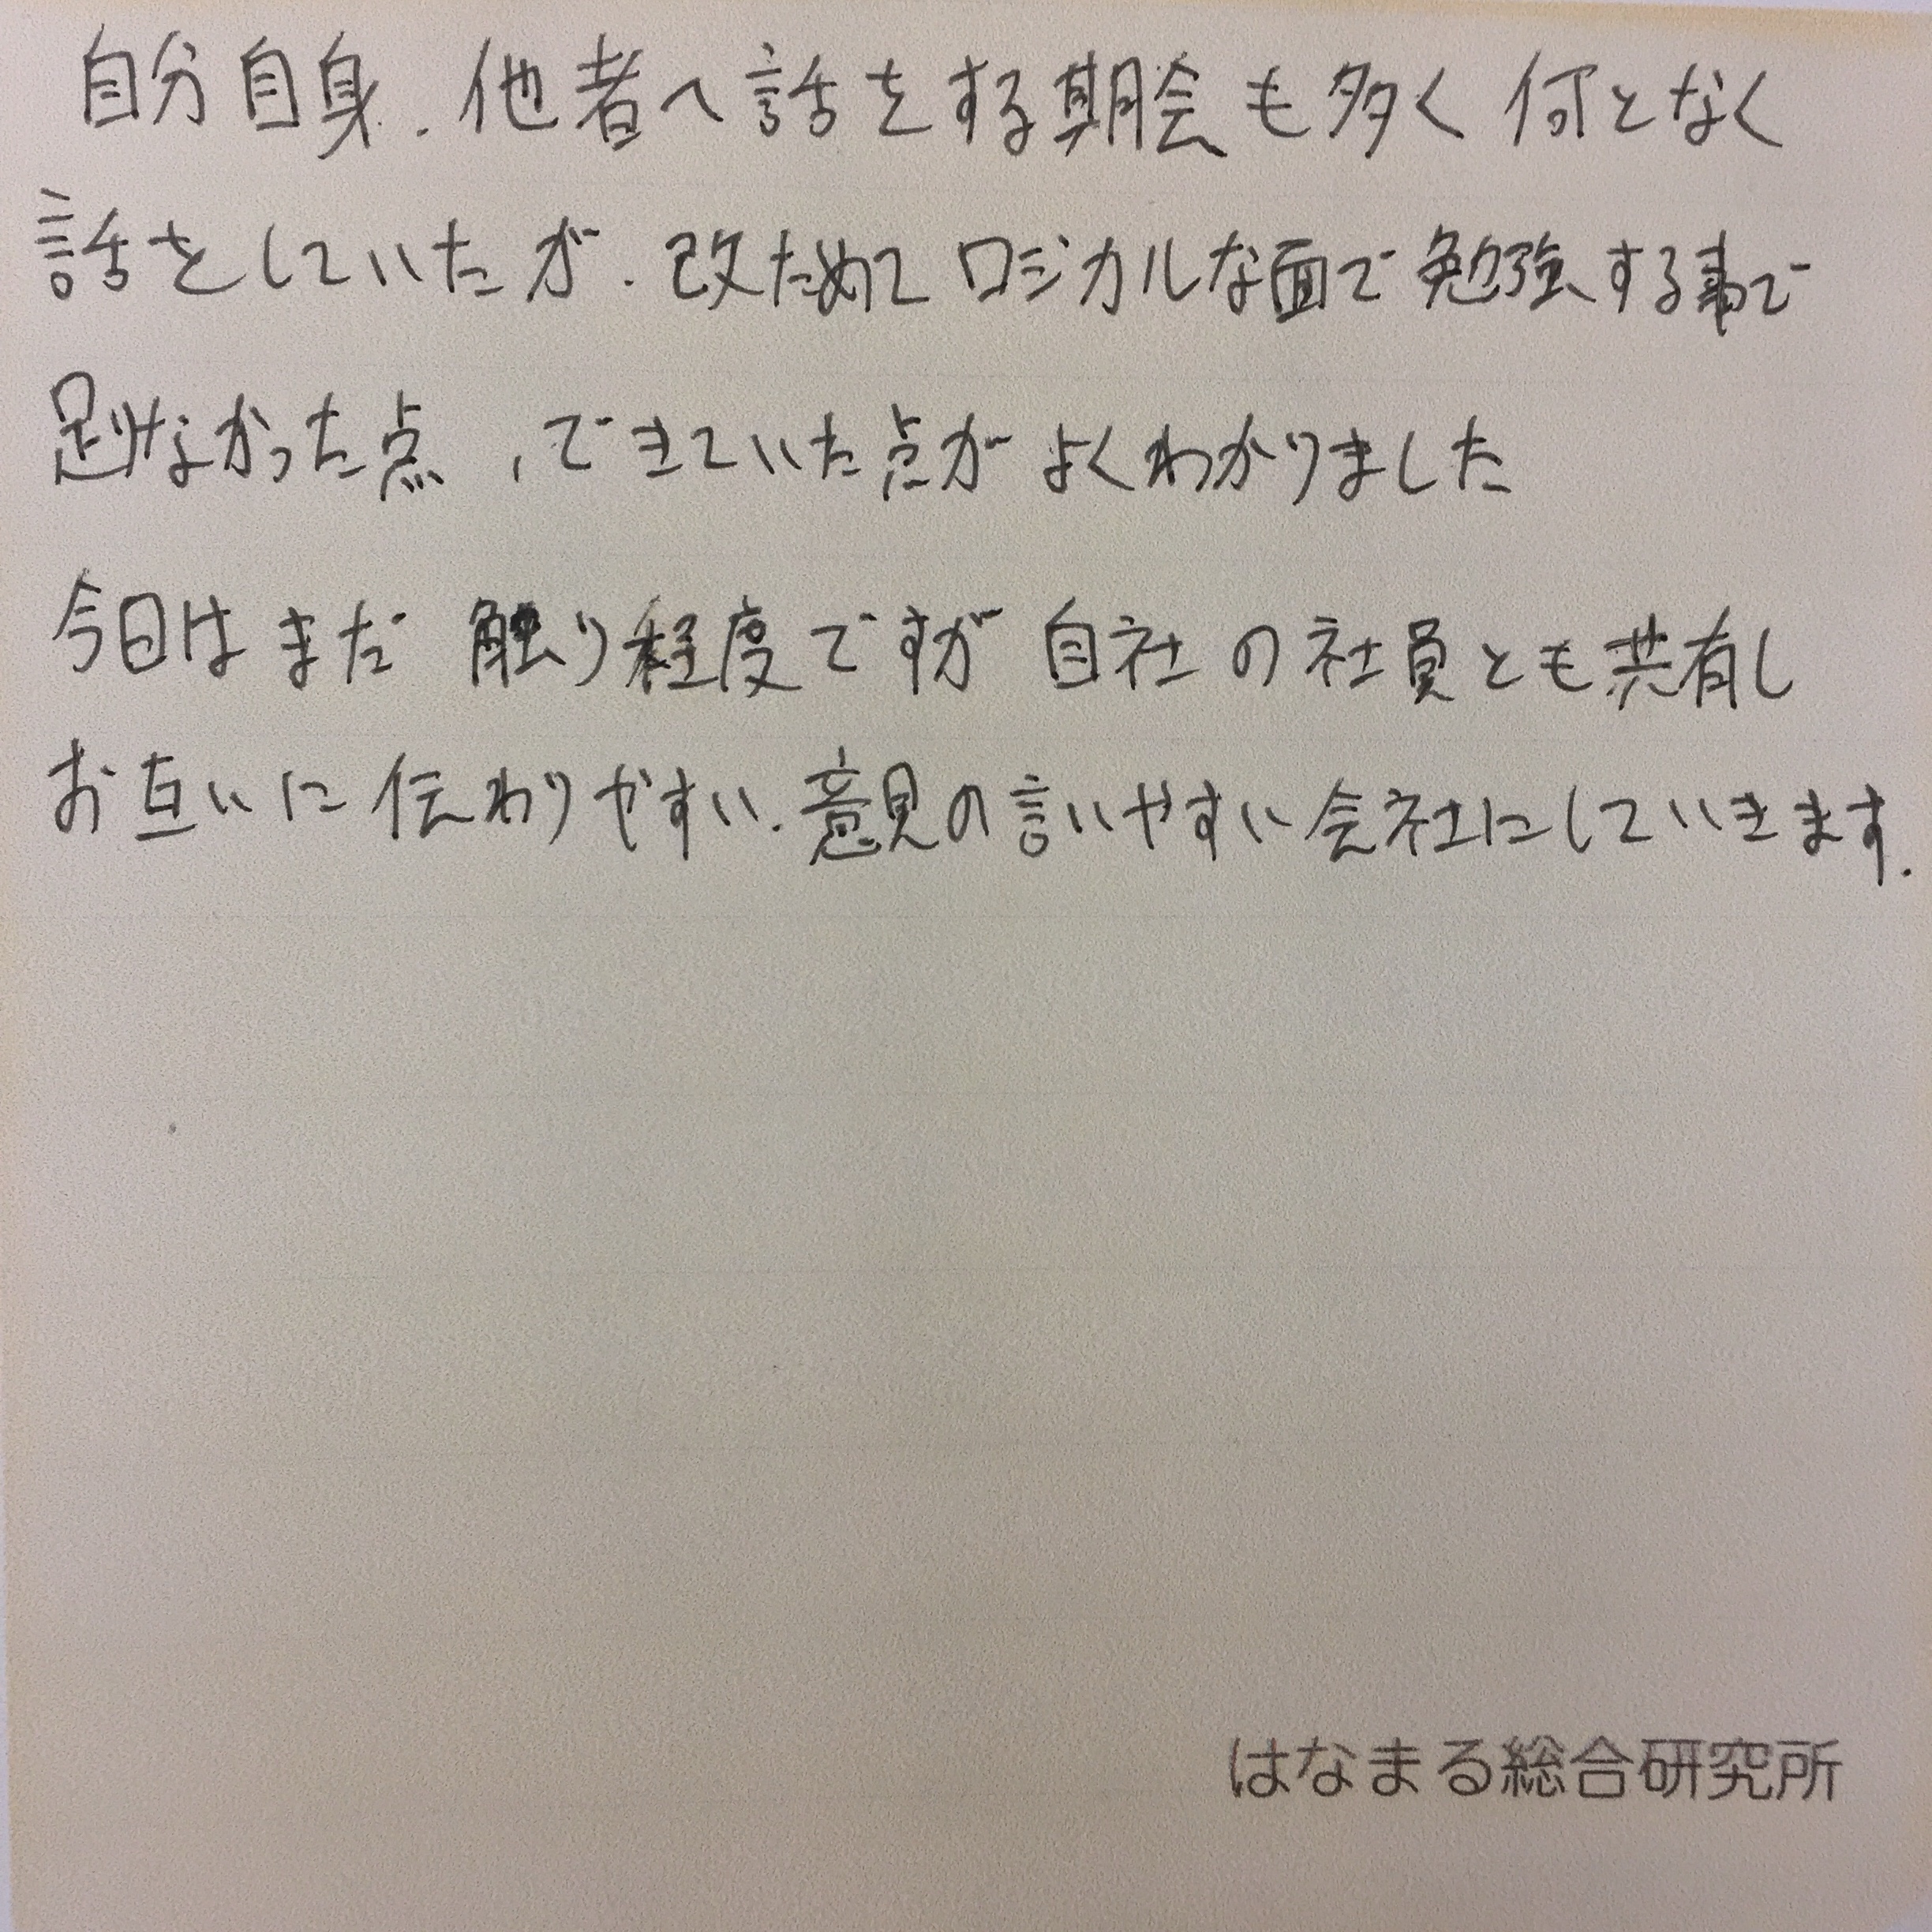 自分自身、他者へ話をする期会も多く何となく
話をしていたが、改ためてロジカルな面で勉強する事で
足りなかった点、できていた点がよくわかりました
今日はまだ触り程度ですが自社の社員とも共有し
お互いに伝わりやすい、意見の言いやすい会社にしていきます.
はなまる総合研究所